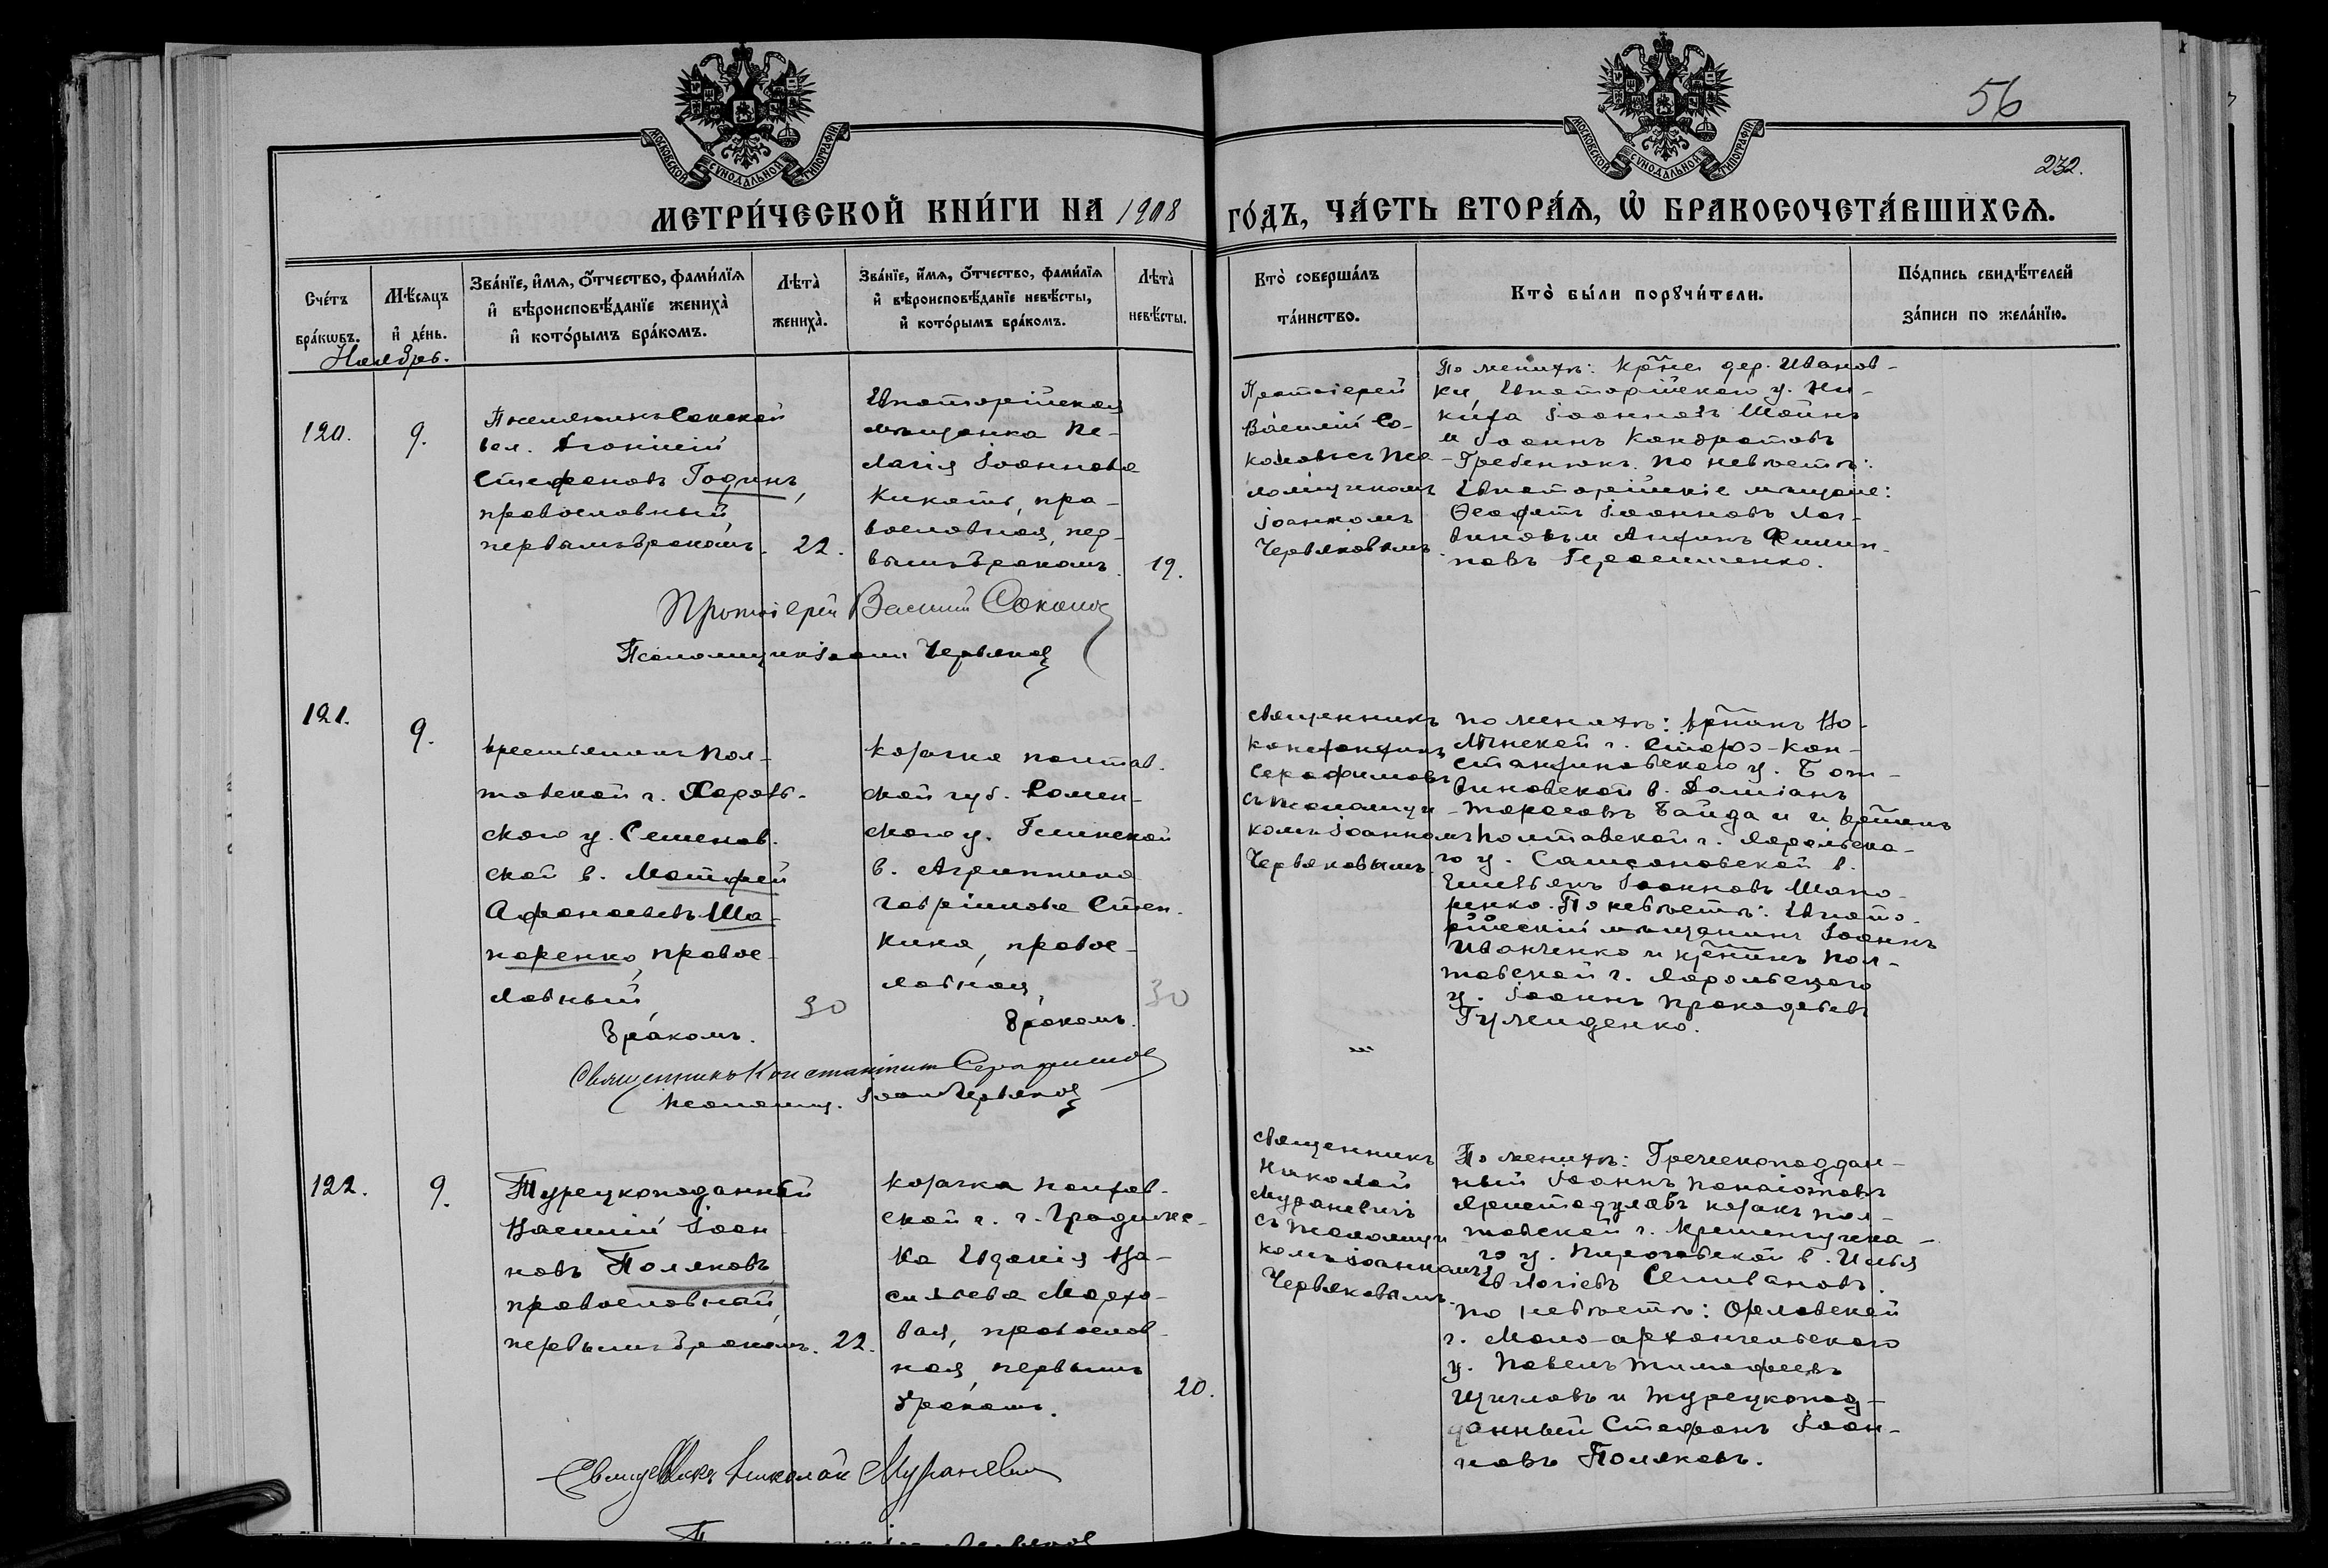 56
232.
МОСКОВСКОЙ СУНОДАЛЬНОЙ ТИПОГРАФІИ
МОСКОВСКОЙ СУНОДАЛЬНОЙ ТИПОГРАФІИ
МЕТРИ́ЧЕСКОЙ КНИ́ГИ НА 1908
ГО́ДЪ, ЧА́СТЬ ВТОРА́Ѧ, Ѡ҆ БРАКОСОЧЕТА́ВШИХСѦ.
Сче́тъ
бра́кѡвъ.
Мѣ́сяцъ
и҆ де́нь.
Зва́нїе, и҆́мѧ, ѻ҆́тчество, фами́лїѧ
и҆ вѣроисповѣ́данїе жениха̀
и҆ кото́рымъ бра́комъ.
Лѣта̀
жениха̀.
Зва́нїе, и҆́мѧ, ѻ҆́тчество, фами́лїѧ
и҆ вѣроисповѣ́данїе невѣ́сты,
и҆ кото́рымъ бра́комъ.
Лѣта̀
невѣ́сты.
Кто̀ соверша́лъ
та́инство.
Кто̀ бы́ли порꙋчи́тели.
По́дпись свидѣ́телей
за́писи по жела́нїю.
Ноябрь.
120.
9.
Поселянинъ Сакской
вол. Діонисій
Стефановъ Годинъ,
православный,
первымъ бракомъ.
22.
Евпаторійская
мѣщанка Пе-
лагія Іоаннова
Кикоть, пра-
вославная, пер-
вымъ бракомъ.
19.
Протоіерей
Василій Со-
коловъ съ пса-
ломщикомъ
Іоанномъ
Червяковымъ.
По женихѣ: кр̃не дер. Иванов-
ки, Евпаторійскаго у. Ни-
кита Іоанновъ
и Іоаннъ Кондратовъ
Гребенюкъ. По невѣстѣ:
Евпаторійскіе мѣщане:
Ѳеофилъ Іоанновъ Лог-
виновъ и Антинъ Филип-
повъ Герасименко.
Протоіерей Василій Соколовъ
Псаломщикъ Іоаннъ Червяковъ
121.
9.
крестьянинъ Пол-
тавской г. Хороль-
скаго у. Семенов-
ской в. Матфей
Афанасіевъ Ша-
поренко, правос-
лавный,
бракомъ.
30
козачка полтав-
ской губ. Ромен-
скаго у. Глинской
в. Агрипина
Гавріилова Стен-
кина, правос-
лавная,
бракомъ.
30
священникъ
Константинъ
Серафимовъ
съ псаломщи-
комъ Іоанномъ
Червяковымъ.
по женихѣ: кр̃тинъ Во-
лынской г. Старо-Кон-
стантиновскаго у.
виновской в. Даміанъ
Тарасовъ Байда и кр̃тинъ
Полтавской г. Хорольска-
го у. Самсоновской в.
Іоанновъ Шапо-
ренко. По невѣстѣ: Евпато-
рійскій мѣщанинъ Іоаннъ
Иванченко и кр̃тинъ Пол-
тавской г. Хорольскаго
у. Іоаннъ Прокофьевъ
Священникъ Константинъ Серафимовъ
псаломщ. Іоаннъ Червяковъ
122.
9.
Турецкоподанный
Василій Іоан-
новъ Поляковъ
православный,
первымъ бракомъ.
22.
козачка Полтав-
ской г. г. Градижс-
ка Евдокія Ва-
сильева Мархо-
вая, православ-
ная, первымъ
бракомъ.
20.
священникъ
Николай
Мураневичъ
съ псаломщи-
комъ Іоанномъ
Червяковымъ.
По женихѣ: Греческоподдан-
ный Іоаннъ Панаіотовъ
Аристодуловъ козакъ Пол-
тавской г. Кременчугска-
го у. Пироговской в. Илья
Евлогіевъ Селивановъ.
по невѣстѣ: Орловской
г. Мало-архангельскаго
у. Павелъ Тимофеевъ
и турецкопод-
данный Стефанъ Іоан-
новъ Поляковъ.
Священникъ Николай Мураневичъ